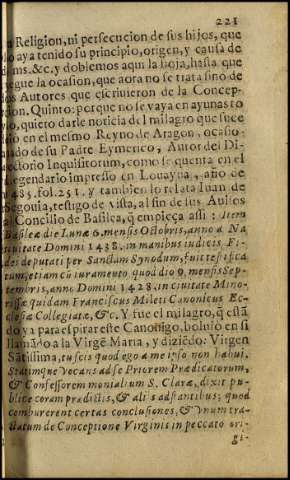 221
Religion, ni persecucion de sus hijos, que
lo aya tenido su principio, origen, y causa de
&c. y doblemos aqui la hoja, hasta que
egue la ocasion, que aora no se trata sino de
os Autores que escriuieron de la Concep-
cion. Quinto: porque no se vaya en ayunas to
, quiero darle noticia del milagro que suce
en el mesmo Reyno de Aragon, ocasio-
ado de su Padre Eymerico, Autor del Di-
ectorio Inquisitorum, como se quenta en el
Legendario impresso en Louayna, año de
485. fol. 251. y tambien lo relata Iuan de
Segouia, testigo de vista, al fin de sus Auisos
al Concilio de Basilea, q̃ empieça assi: Item
Basileæ die Lunæ 6. mensis Octobris, anno à Na
tiuitate Domini 1438. in manibus iudicis Fi-
dei deputati per Sanctam Synodum, fuit testifica
tum, etiam cũ iuramento, quod dio 9. mensis Sep-
tembris, anno Domini 1428. in ciuitate Mino-
rissæ quidam Franciscus Mileti Canonicus Ec-
clesiæ Collegiatæ, &c. Y fue el milagro, q̃ está
do ya para espirar este Canonigo, boluio en si
llamãdo a la Virgẽ Maria, y diziẽdo: Virgen
Sãtissima, tu scis quod ego à me ipso non habui,
Statimque vocans ad se Priorem Prædicatorum,
& Confessorem monialium S. Claræ, dixit pu-
blicè coram prædictis, & alijs adstantibus; quod
comburerent certas conclusiones, & vnum tra-
ctatum de Conceptione Virginis in peccato ori-
gi-